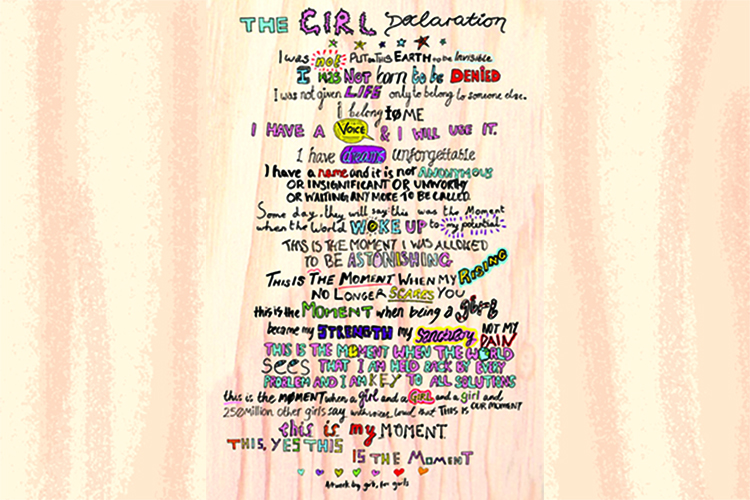 THE GIRL Declaration
I was not PUT on This EARTH to be Invisible
I WAS NOT born to be DENIED
I was not given LIFE only to belong to someone else.
i belong tO ME
I HAVE A VOICE & I WILL USE IT.
I have dreams unforgettable
I have a name and it is not ANONYMOUS
OR INSIGNIFICANT OR UNWORTHY
OR WAITING ANY MORE TO BE CALLED
Some day, they will say: this was the Moment
when the World WOKE UP to my potential
THIS IS THE MOMENT I WAS ALLOWED
TO BE ASTONISHING
THIS IS THE MOMENT WHEN MY RISING
NO LONGER SCARES YOU
this is the MOMENT when being a girl
became my STRENGTH my Sanctuary NOT MY PAIN
THIS IS THE MOMENT WHEN THE WORLD
SEES THAT I AM HELD BACK BY EVERY
PROBLEM AND I AM KEY TO ALL SOLUTIONS
this is the MOMENT when a girl and a GIRL and a girl and
250 million other girls say with voices loud that THIS IS OUR MOMENT
this is my MOMENT.
THIS, YES THIS
IS THE MOMENT
Artwork by girls, for girls